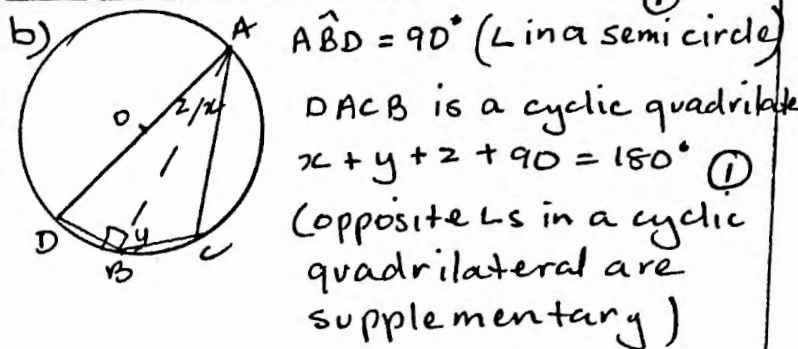 b)
A
O
z
x
D
y
B
C
①
AB̂D = 90° (∠ in a semi circle)
DACB is a cyclic quadrilate
x + y + z + 90 = 180° ①
(opposite ∠s in a cyclic
quadrilateral are
supplementary)